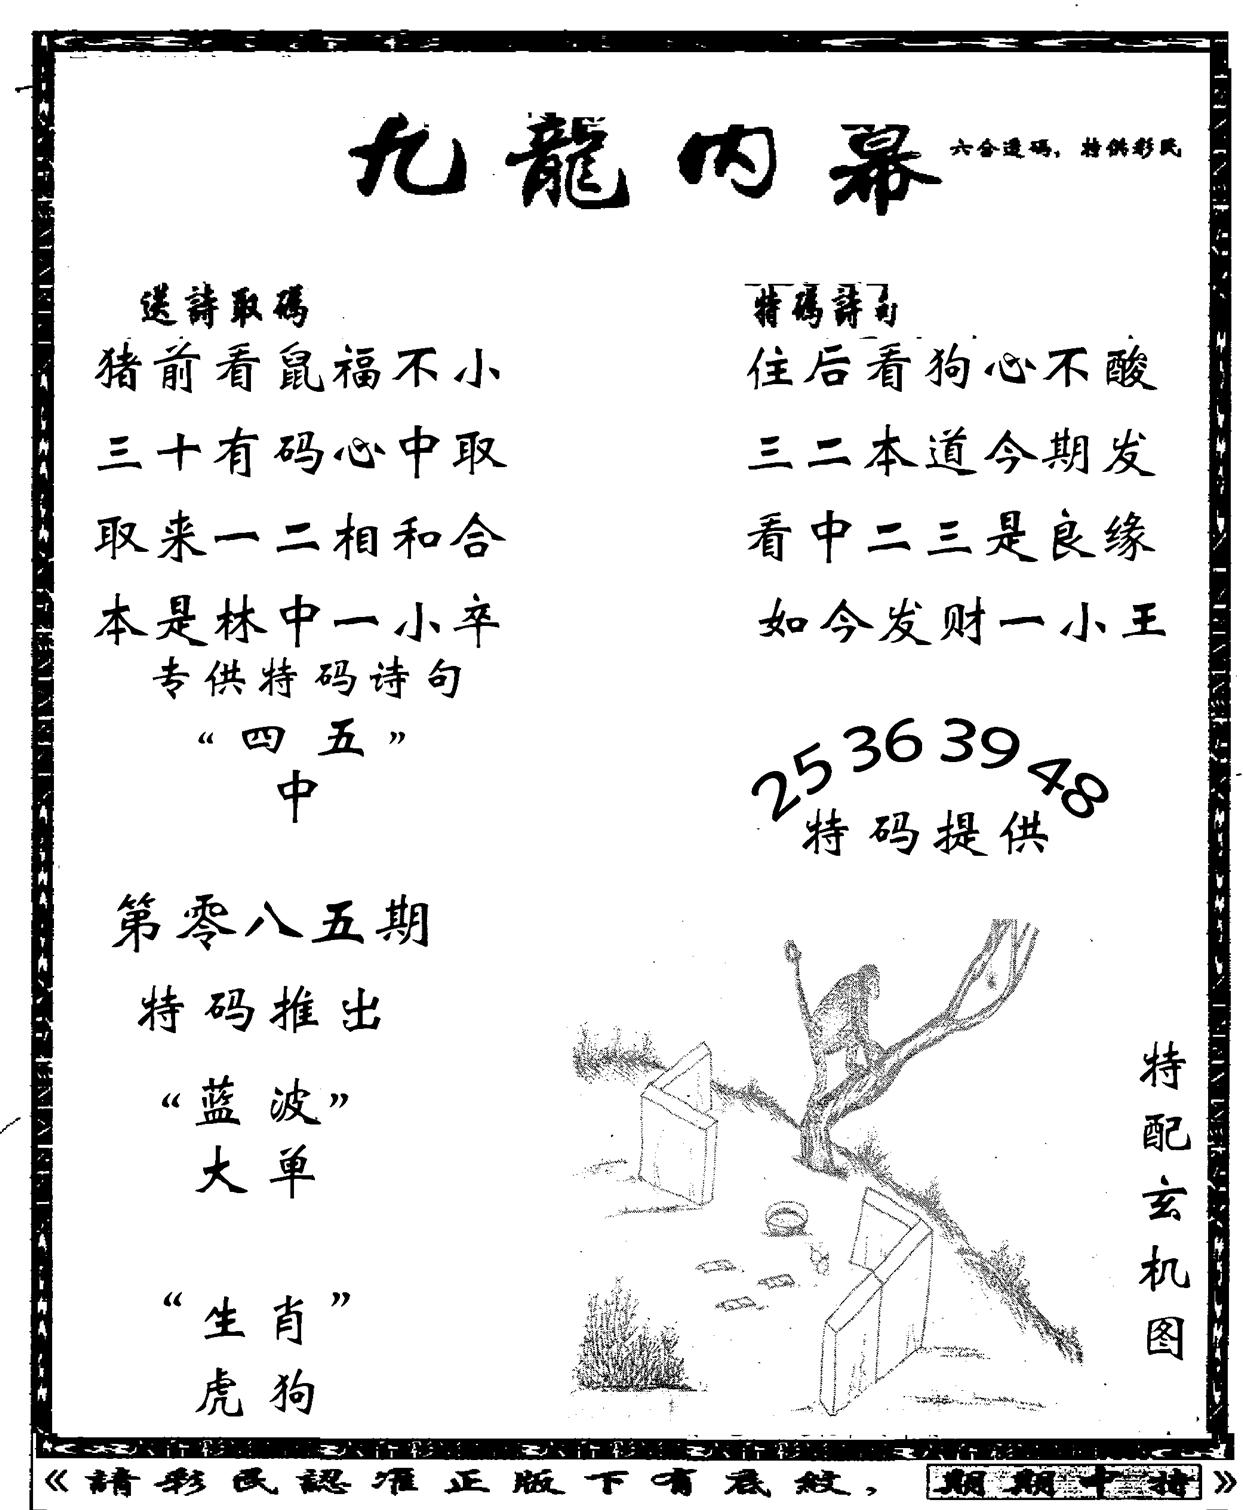 九龍内幕
六合透码，特供彩民
送詩取碼
猪前看鼠福不小
三十有码心中取
取来一二相和合
本是林中一小卒
专供特码诗句
“四五”
中
特碼詩句
住后看狗心不酸
三二本道今期发
看中二三是良缘
如今发财一小王
25 36 39 48
特码提供
第零八五期
特码推出
“蓝波”
大单
“生肖”
虎狗
特配玄机图
《請彩民認准正版下有底紋，期期中特》